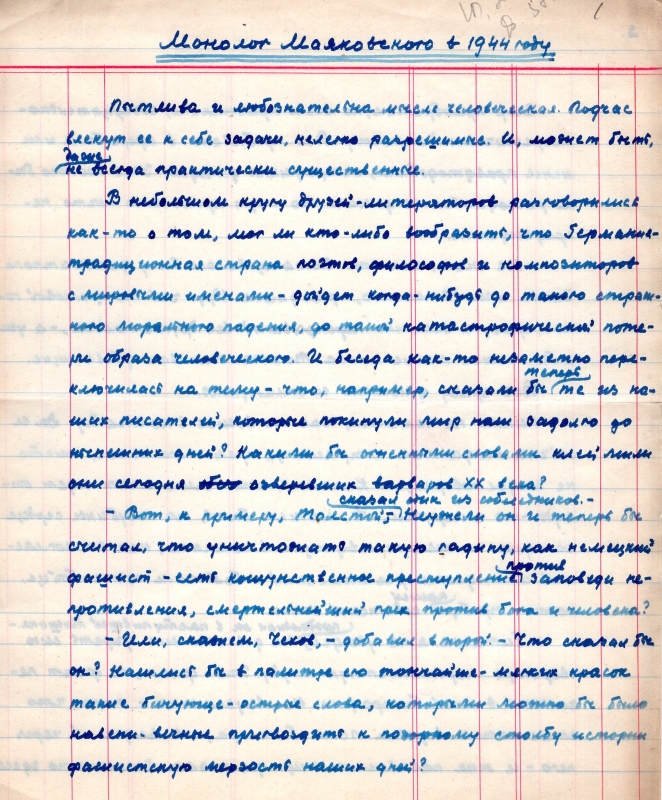 Монолог Маяковского в 1944 году
Пытлива и любознательна мысль человеческая. Подчас
влекут ее к себе задачи, нелегко разрешимые. И, может быть,
даже
не всегда практически существенные.
В небольшом кругу друзей-литераторов разговорились
как-то о том, мог ли кто-либо вообразить, что Германия-
традиционная страна поэтов, философов и композиторов
с мировыми именами - дойдет когда-нибудь до такого страш-
ного морального падения, до такой катастрофической поте-
ри образа человеческого. И беседа как-то незаметно пере-
теперь
ключилась на тему - что, например, сказали бы те из на-
ших писателей, которые покинули мир наш задолго до
нынешних дней? Какими бы огненными словами клеймили
они сегодня озверевших варваров XX века?
сказал один из собеседников. -
- Вот, к примеру, Толстой, - Неужели он и теперь бы
считал, что уничтожать такую гадину, как немецкий
против
фашист - есть кощунственное преступление заповеди не-
противления, смертельнейший грех против бога и человека?
- Или, скажем, Чехов, - добавил второй - Что сказал бы
он? Нашлись бы в палитре его тончайше-мягких красок
такие бичующе-острые слова, которыми можно бы было
навеки-вечные пригвоздить к позорному столбу истории
фашистскую мерзость наших дней?